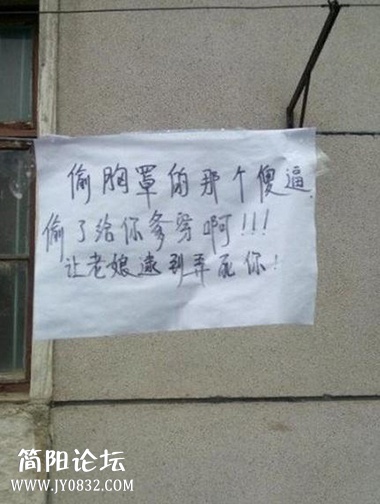 偷胸罩的那个傻逼
偷了给你爹穿啊!!!
让老娘逮到弄死你!
简阳论坛
www.JY0832.com